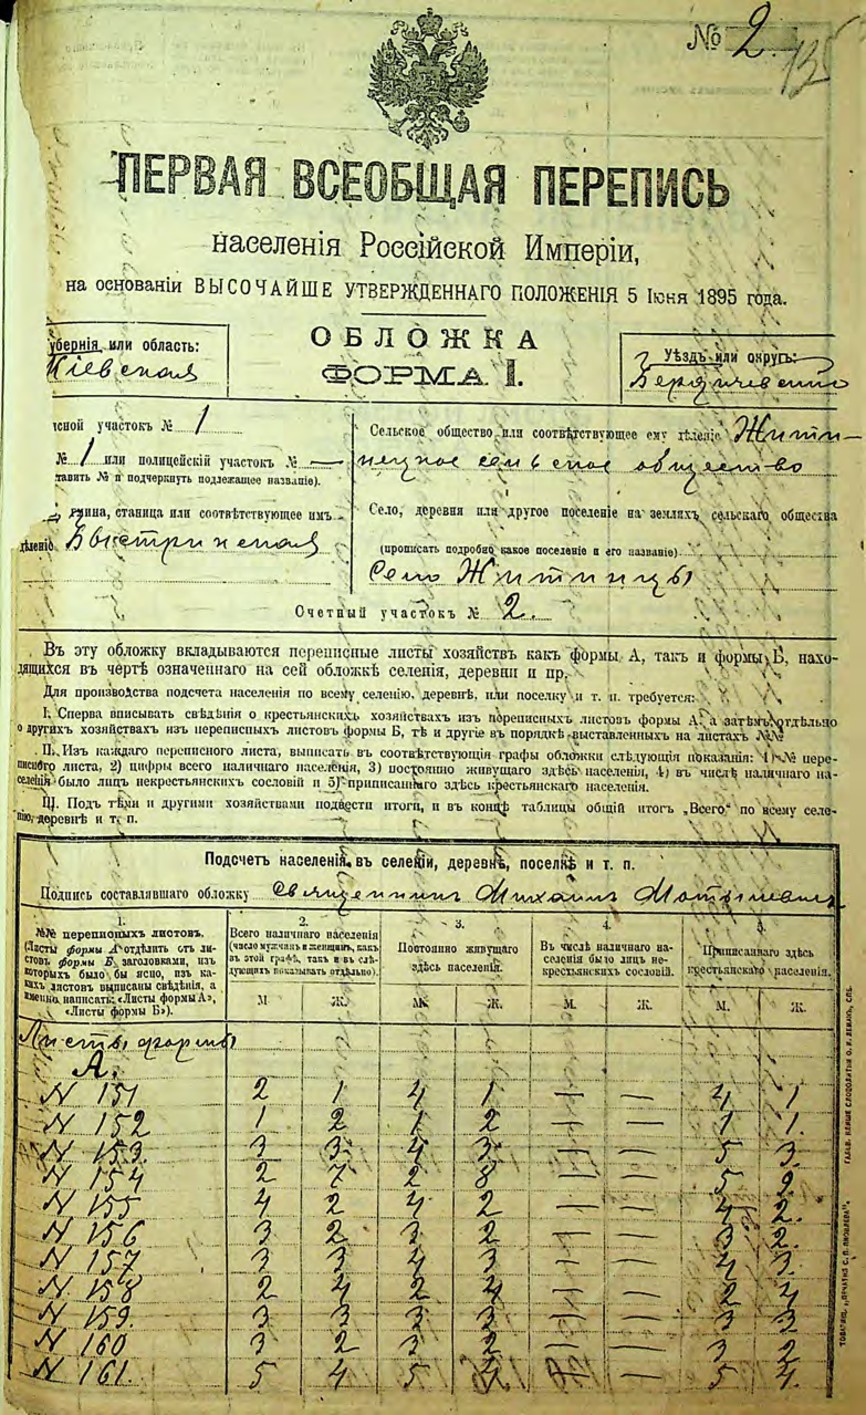 № 2.
ПЕРВАЯ ВСЕОБЩАЯ ПЕРЕПИСЬ
населенія Россійской Имперіи,
на основаніи ВЫСОЧАЙШЕ УТВЕРЖДЕННАГО ПОЛОЖЕНІЯ 5 Іюня 1895 года.
ОБЛОЖКА
ФОРМА I.
убернія или область:
Кіевская
Уѣздъ или округъ:
Бердичевскій
исной участокъ № 1
№ 1 или полицейскій участокъ № —
тавить № и подчеркнуть подлежащее названіе).
станица или соотвѣтствующее имъ
дѣленіе
Сельское общество или соотвѣтствующее ему дѣленіе Житни-
цкое сельское общество
Село, деревня или другое поселеніе на земляхъ сельскаго общества
(прописать подробно какое поселеніе и его названіе)
Село Житницы
Счетный участокъ № 2.
Въ эту обложку вкладываются переписные листы хозяйствъ какъ формы А, такъ и формы Б, нахо-
дящихся въ чертѣ означеннаго на сей обложкѣ селенія, деревни и пр.
Для производства подсчета населенія по всему селенію, деревнѣ, или поселку и т. п. требуется:
I. Сперва вписывать свѣдѣнія о крестьянскихъ хозяйствахъ изъ переписныхъ листовъ формы А, а затѣмъ отдѣльно
о другихъ хозяйствахъ изъ переписныхъ листовъ формы Б, тѣ и другіе въ порядкѣ выставленныхъ на листахъ №№
II. Изъ каждаго переписного листа, выписать въ соотвѣтствующія графы обложки слѣдующія показанія: 1) № пере-
писного листа, 2) цифры всего наличнаго населенія, 3) постоянно живущаго здѣсь населенія, 4) въ числѣ наличнаго на-
селенія было лицъ некрестьянскихъ сословій и 5) приписаннаго здѣсь крестьянскаго населенія.
III. Подъ тѣми и другими хозяйствами подвести итоги, и въ концѣ таблицы общій итогъ „Всего“ по всему селе-
нію, деревнѣ и т. п.
Подсчетъ населенія въ селеніи, деревнѣ, поселкѣ и т. п.
Подпись составлявшаго обложку Священникъ Михаилъ
1.
№№ переписныхъ листовъ.
(Листы формы А отдѣлить отъ ли-
стовъ формы Б заголовками, изъ
которыхъ было бы ясно, изъ ка-
кихъ листовъ выписаны свѣдѣнія, а
именно написать: «Листы формы А»,
«Листы формы Б»).
2.
Всего наличнаго населенія
(число мужчинъ и женщинъ, какъ
въ этой графѣ, такъ и въ слѣ-
дующихъ показывать отдѣльно).
3.
Постоянно живущаго
здѣсь населенія.
4.
Въ числѣ наличнаго на-
селенія было лицъ не-
крестьянскихъ сословій.
5.
Приписаннаго здѣсь
крестьянскаго населенія.
М Ж. М. Ж. М. Ж. М. Ж.
Листы формы
А.
N 151 2 1 4 1 — — 4 1
N 152 1 2 1 2 — — 1 1.
N 153. 3 3 4 3 — — 5 3.
N 154 2 7 2 8 — — 5 2
N 155 4 2 4 2 — — 4 2.
N 156 3 2 3 2 — — 3 2.
N 157 3 3 4 3 — — 4 3.
N 158 2 4 2 4 — — 2 4
N 159. 3 3 3 3 — — 3 3
N 160 3 2 3 2 — — 3 2
N 161. 5 4 5 4 — — 5 4